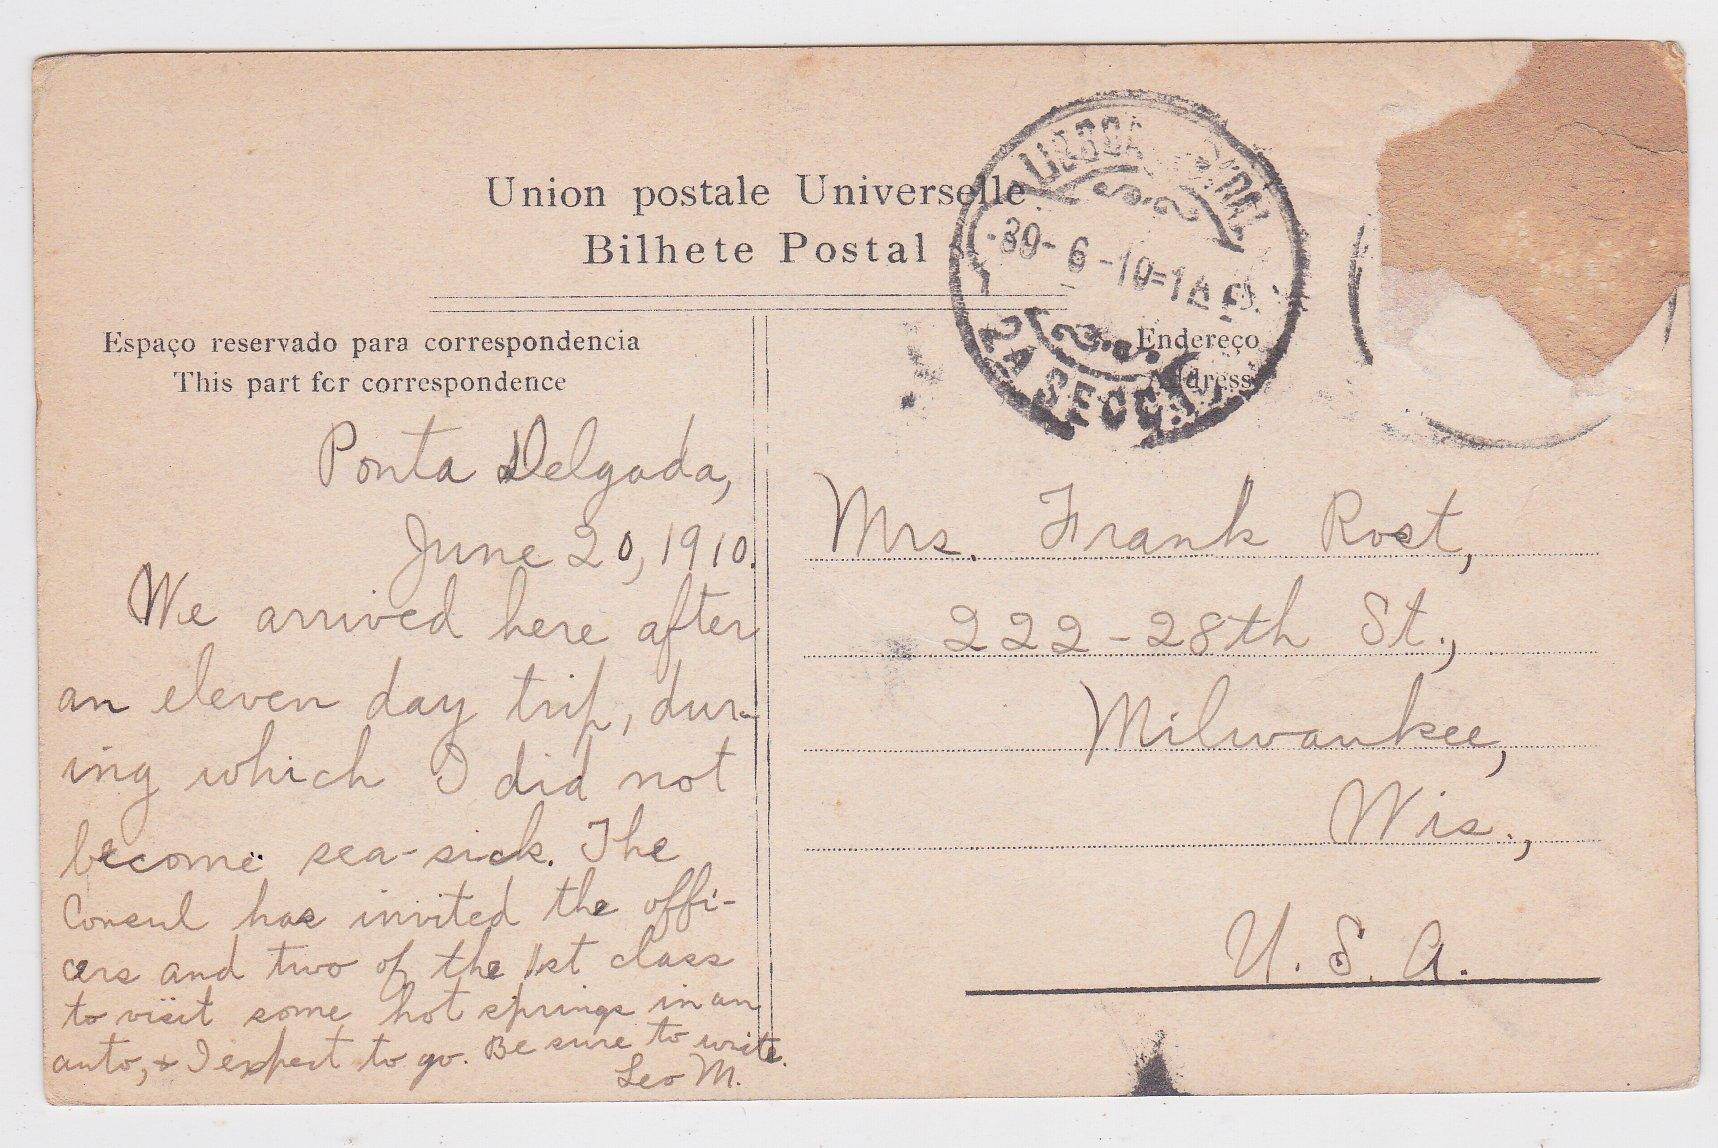 Union postale Universelle
Bilhete Postal
LISBOA CENTRAL
-30-6-10=1A
2A SECÇÃO
Espaço reservado para correspondencia
This part for correspondence
Endereço
Address
Ponta Delgada,
June 20, 1910.
We arrived here after
an eleven day trip, dur-
ing which I did not
become sea-sick. The
Consul has invited the offi-
cers and two of the 1st class
to visit some hot springs in an
auto, & I expect to go. Be sure to write.
Leo M.
Mrs. Frank Rost,
222-28th St.,
Milwaukee,
Wis.,
U.S.A.